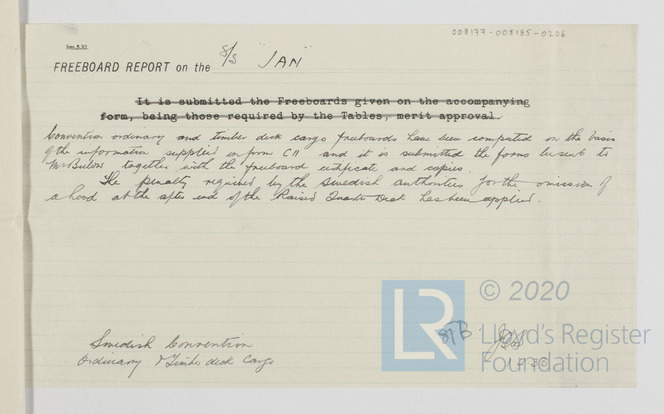 008177-008185-0206
FREEBOARD REPORT on the S/S JAN
It is submitted the Freeboards given on the accompanying
form, being those required by the Tables, merit approval.
Convention ordinary and timber deck cargo freeboards have been computed on the basis
of the information supplied on form C11 and it is submitted the forms be sent to
Mr Bulow together with the freeboard certificate and copies.
The penalty required by the Swedish authorities for the omission of
a hood at the after end of the Raised Quarter Deck has been applied.
© 2020
LR
Lloyd's Register
Foundation
Swedish Convention
Ordinary & Timber deck Cargo